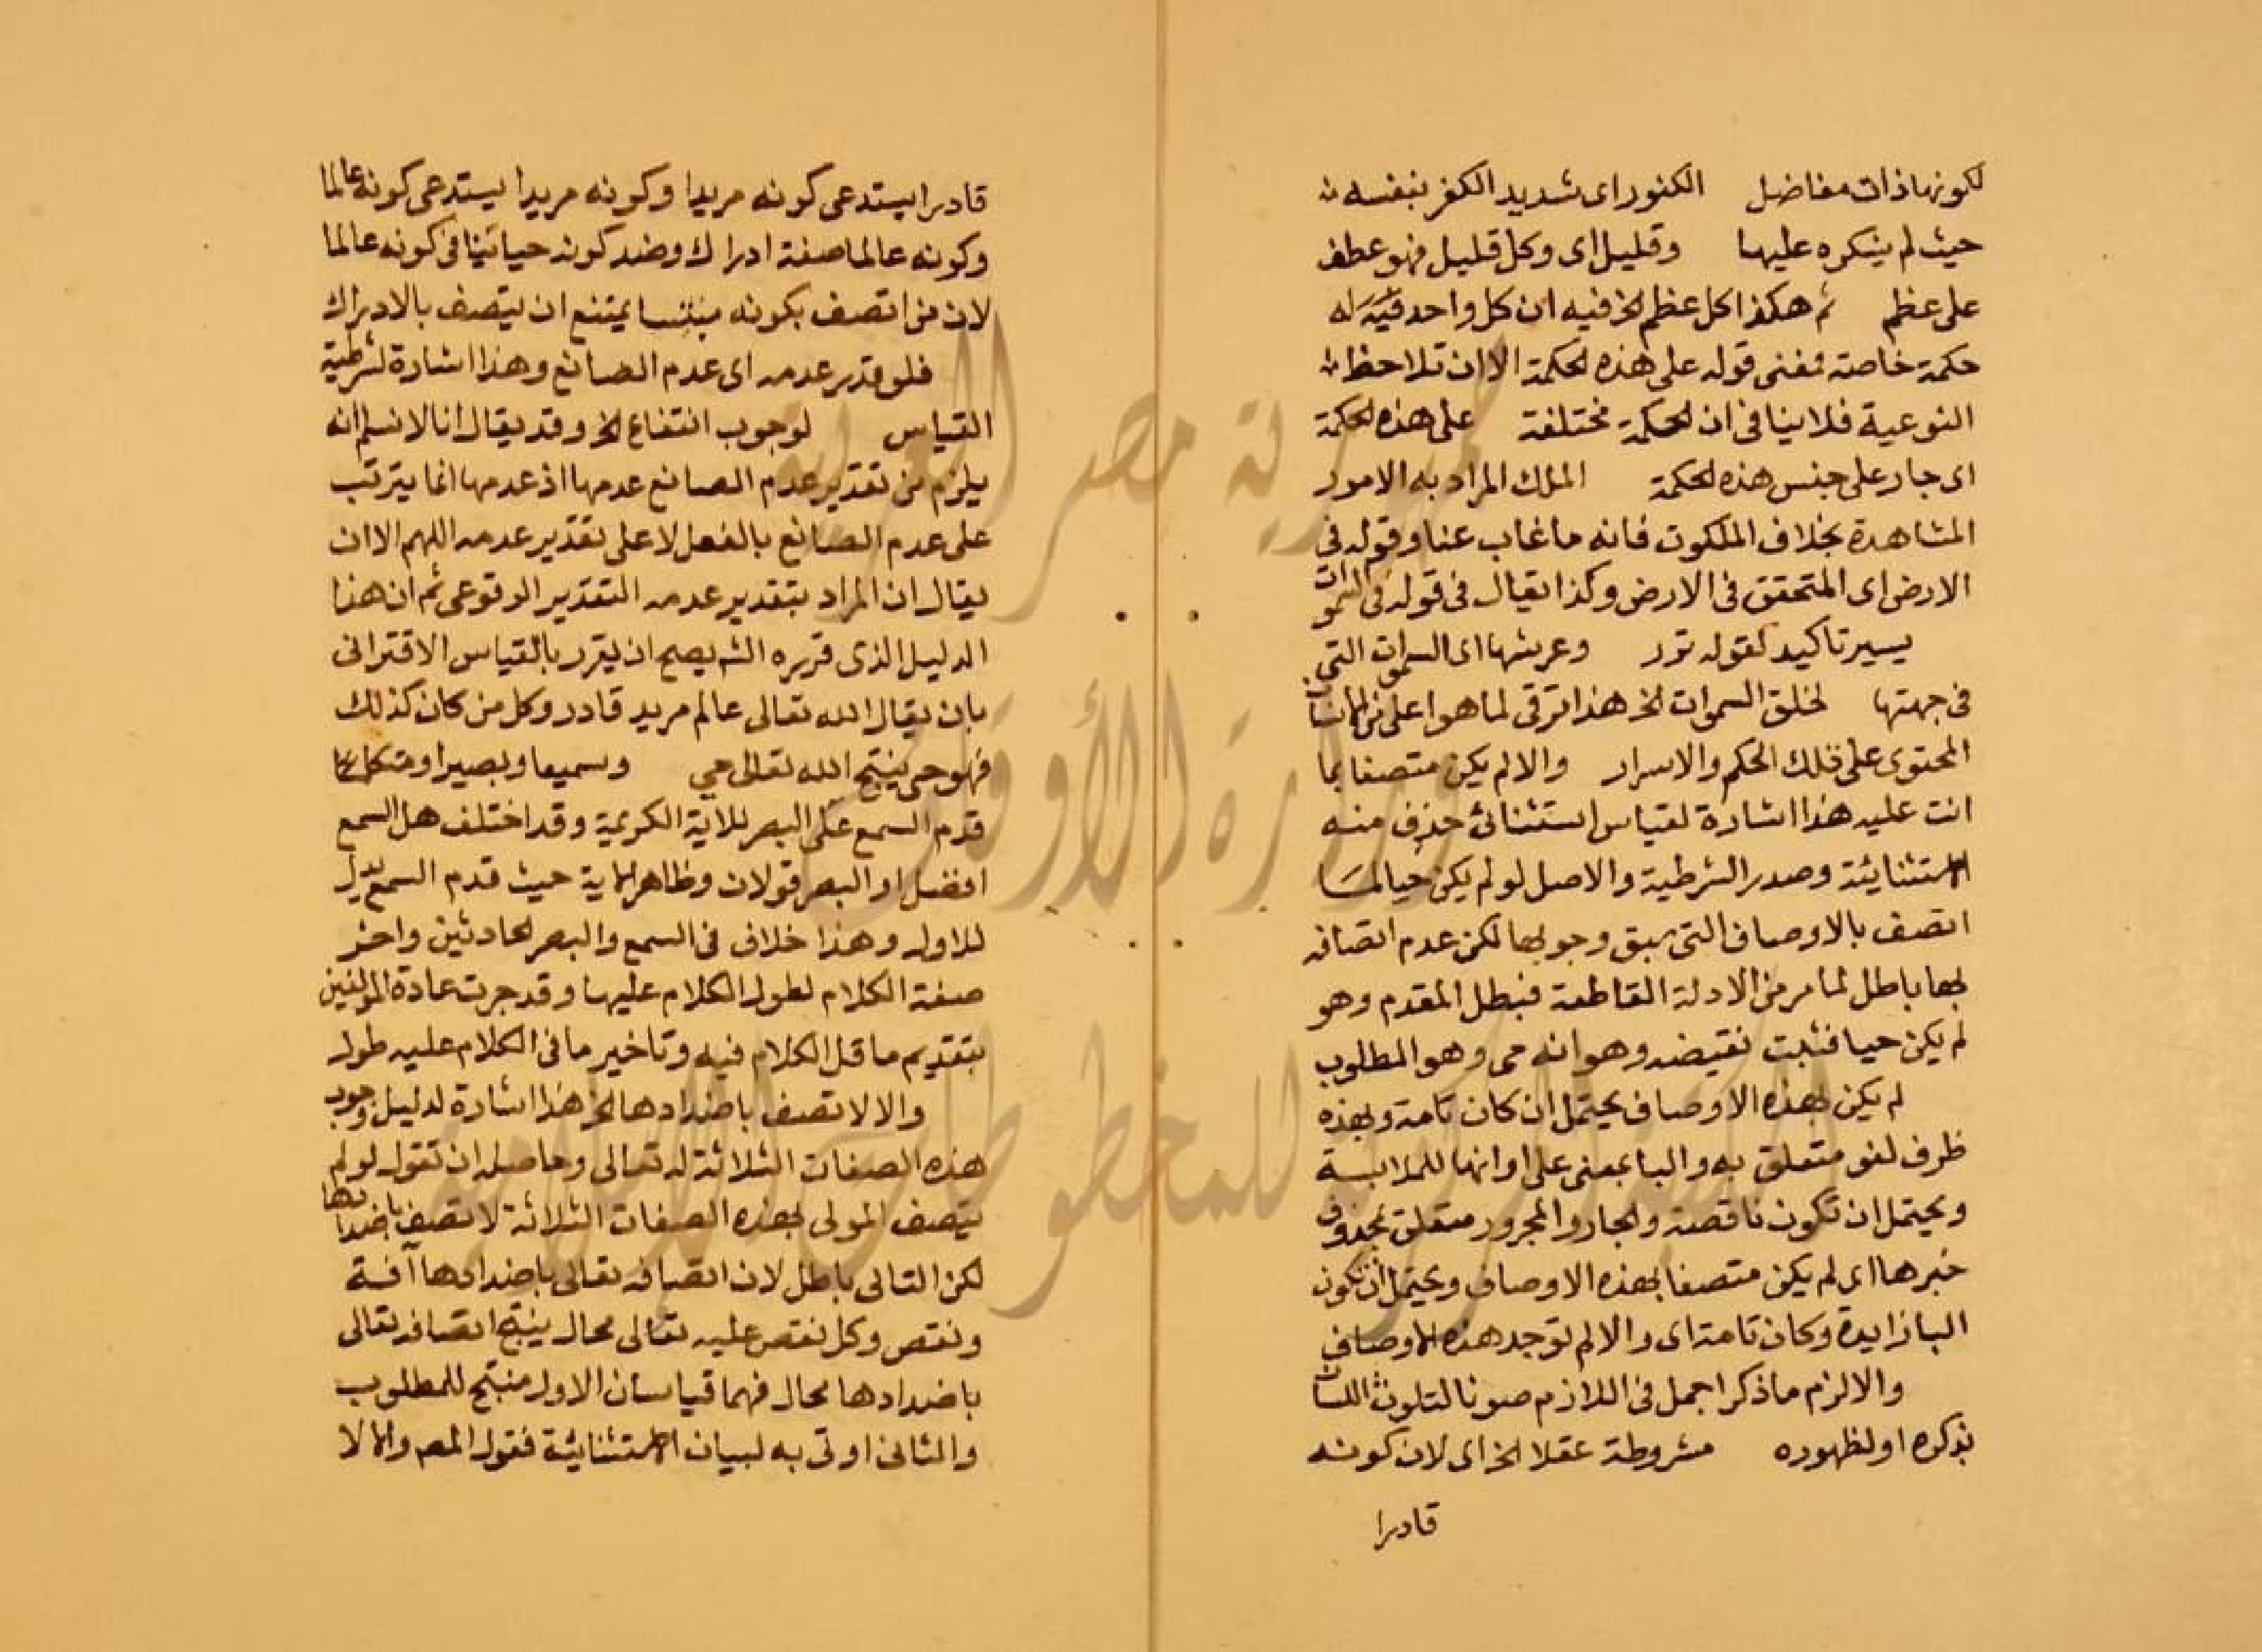 لكونها ذات مفاضل الكنود اى شديد الكفر بنفسه
حيث لم ينكره عليها وقليل اى وكل قليل فهو عطف
على عظم ثم هكذا كل عظم الخ فيه ان كل واحد فيه له
حكمة خاصة فمعنى قوله على هذه الحكمة الا ان تلاحظ
النوعية فلا ينافى ان الحكمة مختلفة على هذه الحكمة
اى جار على جنس هذه الحكمة الملك المراد به الامور
المشاهدة بخلاف الملكوت فانه ما غاب عنا وقوله فى
الارض اى المتحقق فى الارض وكذا يقال فى قوله فى السموات
يسير تاكيد لقوله نزر وعرشها اى السموات التى
فى جهتها لخلق السموات الخ هذا ترقى لما هو اعلى من الانسان
المحتوى على تلك الحكم والاسرار والا لم يكن متصفا بما
انت عليه هذا اشارة لقياس استثنائى حذف منه
الاستثنائية وصدر الشرطية والاصل لو لم يكن حيا لما
اتصف بالاوصاف التى سبق وجوبها لكن عدم اتصافه
بها باطل لما مر من الادلة القاطعة فبطل المقدم وهو
لم يكن حيا فثبت نقيضه وهو انه حى وهو المطلوب
لم يكن بهذه الاوصاف يحتمل ان كان تامة وبهذه
ظرف لغو متعلق به والبا بمعنى على او انها للملابسة
ويحتمل ان تكون ناقصة والجار والمجرور متعلق بمحذوف
خبرها اى لم يكن متصفا بهذه الاوصاف ويحتمل ان تكون
البا زايدة وكان تامة اى والا لم توجد هذه الاوصاف
والا لزم ما ذكر اجمل فى اللازم صونا لتلوث اللسان
بذكره او لظهوره مشروطة عقلا الخ اى لان كونه
قادرا
قادرا يستدعى كونه مريدا وكونه مريدا يستدعى كونه عالما
وكونه عالما صفة ادراك وضد كونه حيا ينافى كونه عالما
لان من اتصف بكونه ميتا يمتنع ان يتصف بالادراك
فلو قدر عدمه اى عدم الصانع وهذا اشارة لشرطية
القياس لوجوب انتفاع الخ وقد يقال انا لا نسلم انه
يلزم من تقدير عدم الصانع عدمها اذ عدمها انما يترتب
على عدم الصانع بالفعل لا على تقدير عدمه اللهم الا ان
يقال ان المراد بتقدير عدمه التقدير الوقوعى ثم ان هذا
الدليل الذى قرره الشه يصح ان يقرر بالقياس الاقترانى
بان يقال الله تعالى عالم مريد قادر وكل من كان كذلك
فهو حى ينتج الله تعالى حي وسميعا وبصيرا ومتكلما
قدم السمع على البصر للاية الكريمة وقد اختلف هل السمع
افضل او البصر قولان وظاهر الاية حيث قدم السمع يدل
للاول وهذا خلاف فى السمع والبصر الحادثين واخر
صفة الكلام لطول الكلام عليها وقد جرت عادة المولفين
بتقديم ما قل الكلام فيه وتاخير ما فى الكلام عليه طول
والا لاتصف باضدادها الخ هذا اشارة لدليل وجوب
هذه الصفات الثلاثة له تعالى وحاصله ان تقول لو لم
يتصف المولى بهذه الصفات الثلاثة لاتصف باضدادها
لكن التالى باطل لان اتصافه تعالى باضدادها آفة
ونقص وكل نقص عليه تعالى محال ينتج اتصافه تعالى
باضدادها محال فهما قياسان الاول منتج للمطلوب
والثانى اوتى به لبيان الاستثنائية فقول المصه والا لا
جمهورية مصر العربية
وزارة الأوقاف